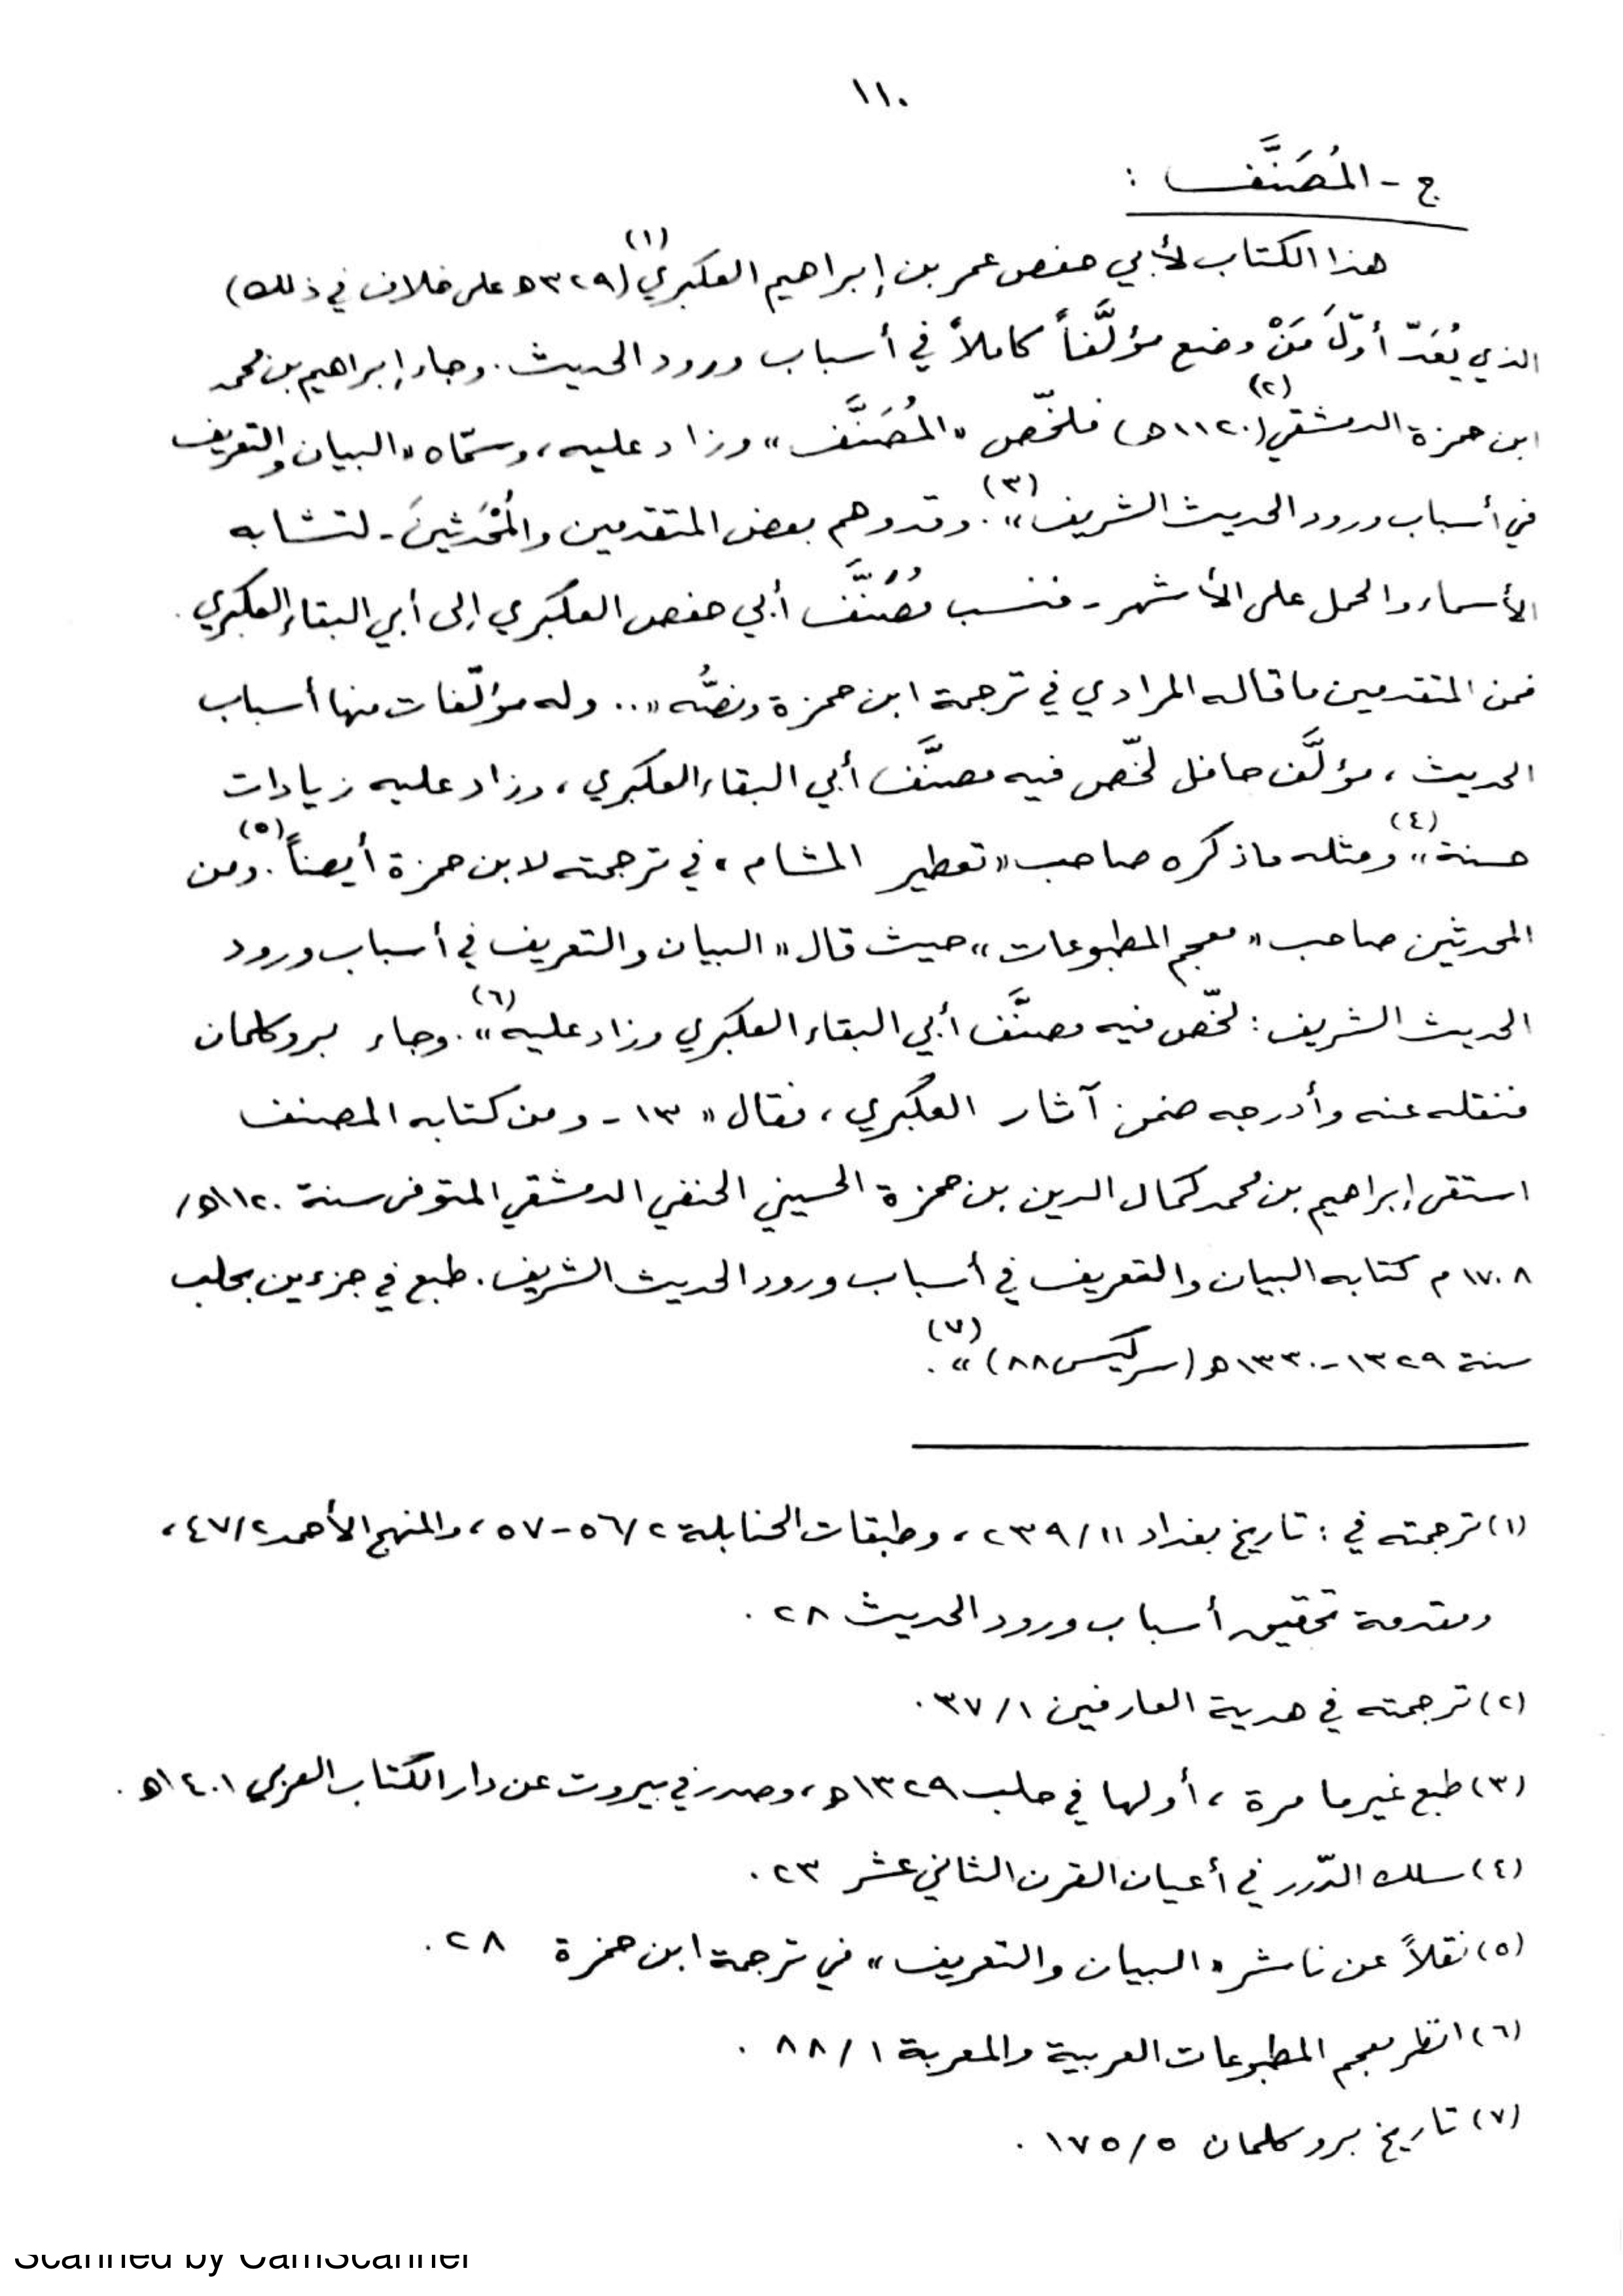 ١١٠
ج - المُصَنَّف :
هذا الكتاب لأبي حفص عمر بن إبراهيم العكبري(١) (٣٢٩ ه على خلاف في ذلك)
الذي يُعَدّ أوّلَ مَنْ وضع مؤلَّفاً كاملاً في أسباب ورود الحديث. وجاء إبراهيم بن محمد
ابن حمزة الدمشقي(٢) (١١٢٠ هـ) فلخّص «المُصَنَّف» وزاد عليه، وسمّاه «البيان والتعريف
في أسباب ورود الحديث الشريف»(٣). وقد وهم بعض المتقدمين والمُحْدَثينَ - لتشابه
الأسماء والحمل على الأشهر - فنسب مُصَنَّف أبي حفص العكبَري إلى أبي البقاء العكبري.
فمن المتقدمين ما قاله المرادي في ترجمة ابن حمزة ونصُّه «.. وله مؤلّفات منها أسباب
الحديث، مؤلَّف حافل لخّص فيه مصنَّف أبي البقاء العكبري، وزاد عليه زيادات
حسنة»(٤) ومثله ما ذكره صاحب «تعطير المشام» في ترجمته لابن حمزة أيضاً(٥). ومن
المحدثين صاحب «معجم المطبوعات» حيث قال «البيان والتعريف في أسباب ورود
الحديث الشريف: لخّص فيه مصنَّف أبي البقاء العكبري وزاد عليه»(٦). وجاء بروكلمان
فنقله عنه وأدرجه ضمن آثار العكبُري، فقال «١٣ - ومن كتابه المصنف
استقى إبراهيم بن محمد كمال الدين بن حمزة الحسيني الحنفي الدمشقي المتوفى سنة ١١٢٠ه/
١٧٠٨ م كتابه البيان والتعريف في أسباب ورود الحديث الشريف. طبع في جزءين بحلب
سنة ١٣٢٩-١٣٣٠ ه (سركيس ٨٨)»(٧).
(١) ترجمته في: تاريخ بغداد ١١/٢٣٩، وطبقات الحنابلة ٢/٥٦-٥٧، والمنهج الأحمد ٢/٤٧،
ومقدمة تحقيق أسباب ورود الحديث ٢٨.
(٢) ترجمته في هدية العارفين ١/٣٧.
(٣) طبع غير ما مرة، أولها في حلب ١٣٢٩ ه، وصدر في بيروت عن دار الكتاب العربي ١٤٠١ه.
(٤) سلك الدّرر في أعيان القرن الثاني عشر ٢٣.
(٥) نقلاً عن ناشر «البيان والتعريف» في ترجمة ابن حمزة ٢٨.
(٦) انظر معجم المطبوعات العربية والمعربة ١/٨٨.
(٧) تاريخ بروكلمان ٥/١٧٥.
Scanned by CamScanner